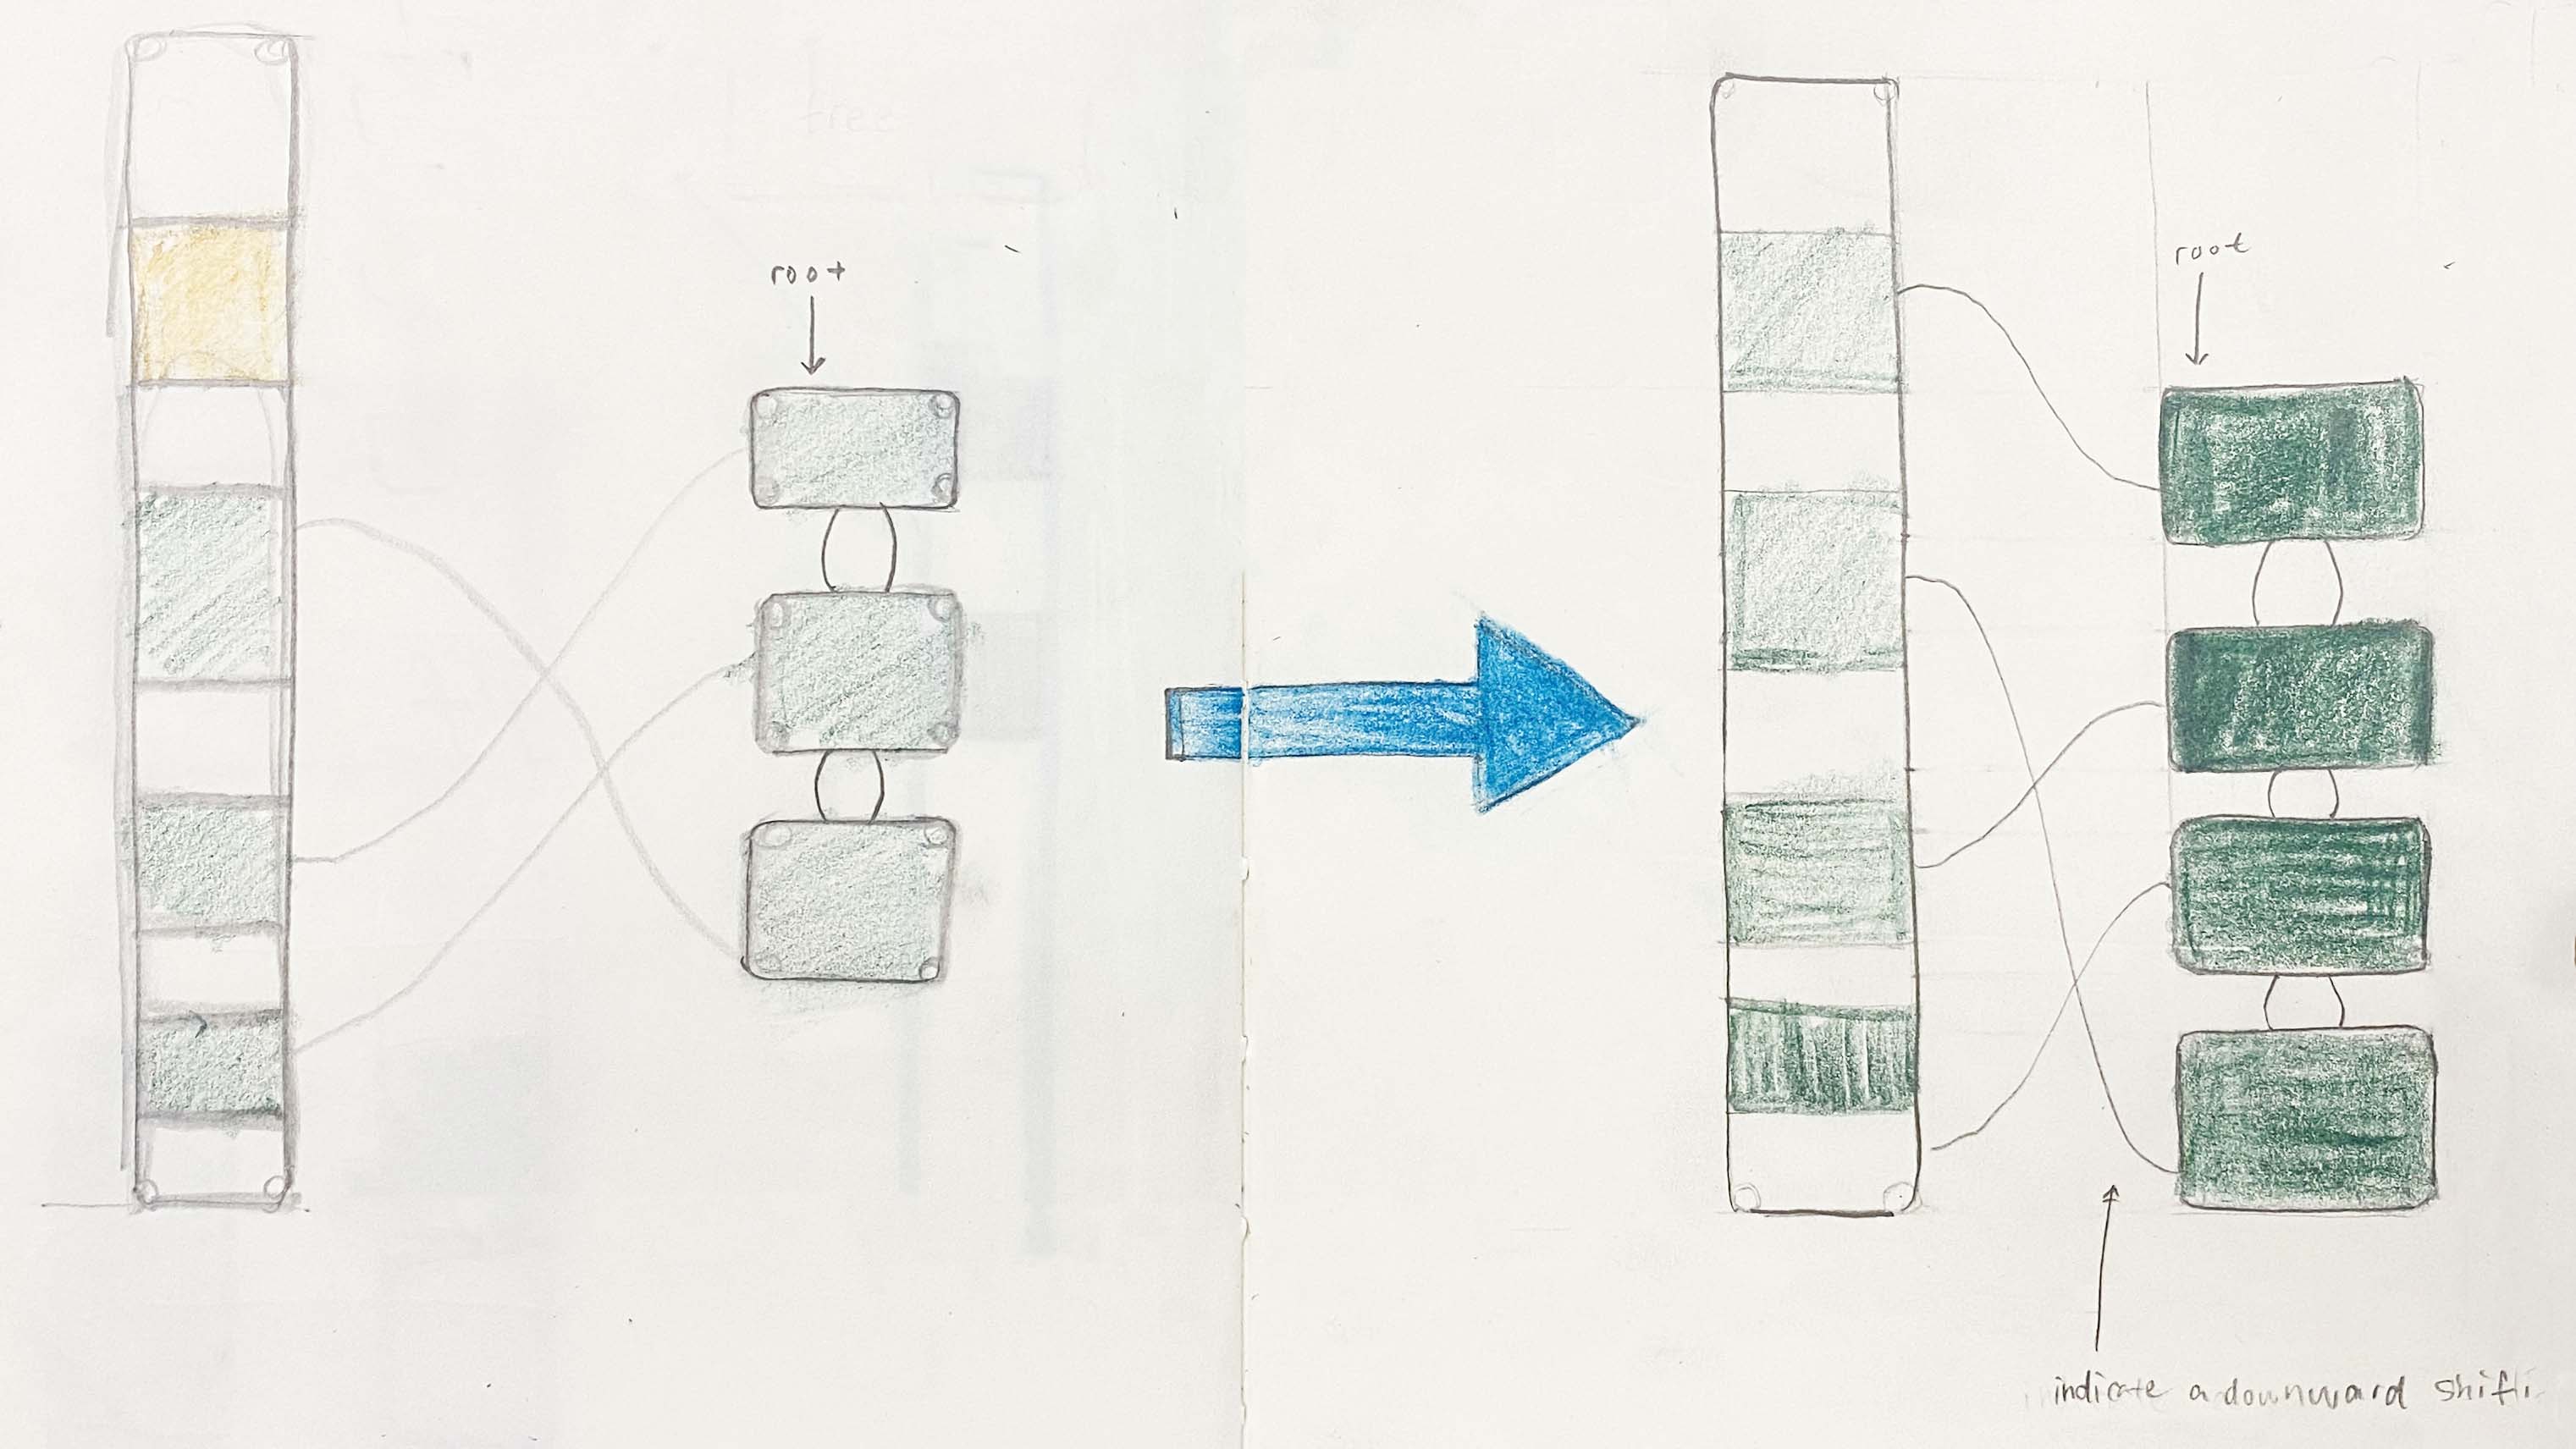 free
root
root
indicate a downward shift